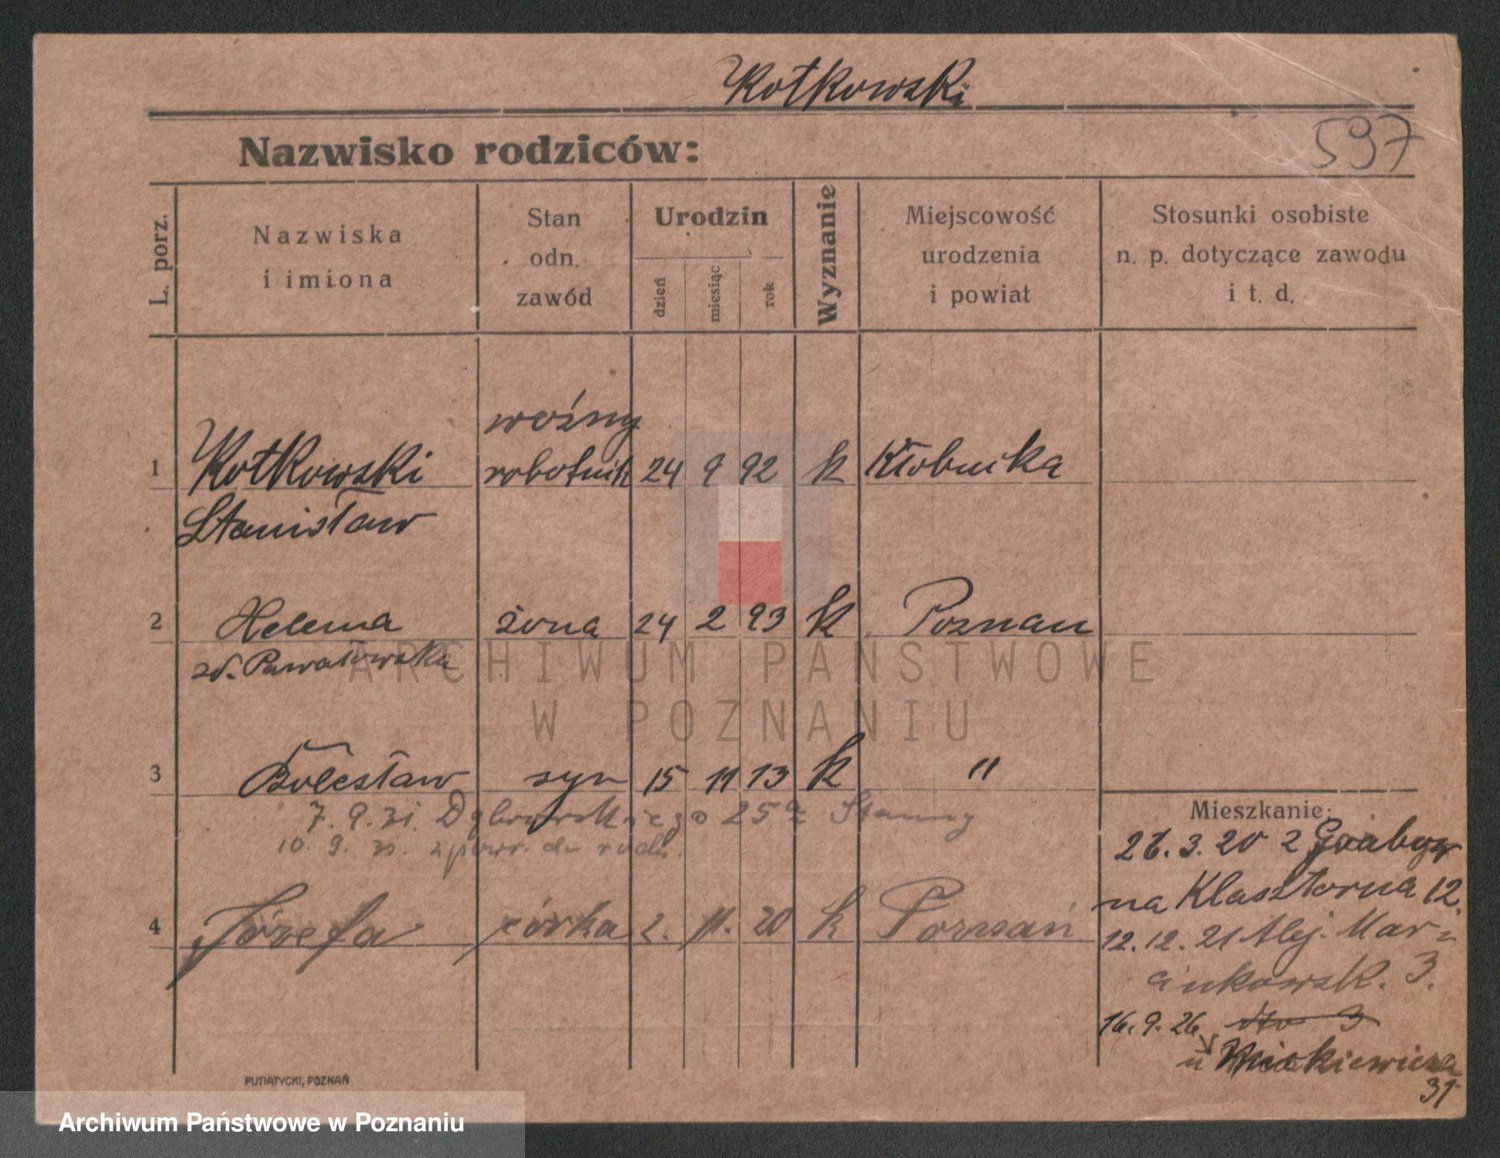 Kotkowski
597
Nazwisko rodziców:
L. porz.
Nazwiska
i imiona
Stan
odn.
zawód
Urodzin
dzień
miesiąc
rok
Wyznanie
Miejscowość
urodzenia
i powiat
Stosunki osobiste
n. p. dotyczące zawodu
i t. d.
woźny
1 Kotkowski robotnik 24 9 92 k Kłobnika
Stanisław
2 Helena żona 24 2 93 k Poznan
zd. Pawałowska
ARCHIWUM PAŃSTWOWE
W POZNANIU
3 Bolesław syn 15 11 13 k "
7. 9. 31. Dąbrowskiego 25a
10. 9. 31. z powr. do rodz.
4 Józefa córka 2. 11. 20 k Poznań
Mieszkanie:
26. 3. 20 z
na Klasztorna 12.
12. 12. 21 Alej. Mar-
cinkowsk. 3.
16. 9. 26. dto 3
Mickiewicza
31
PUTIATYCKI, POZNAŃ
Archiwum Państwowe w Poznaniu